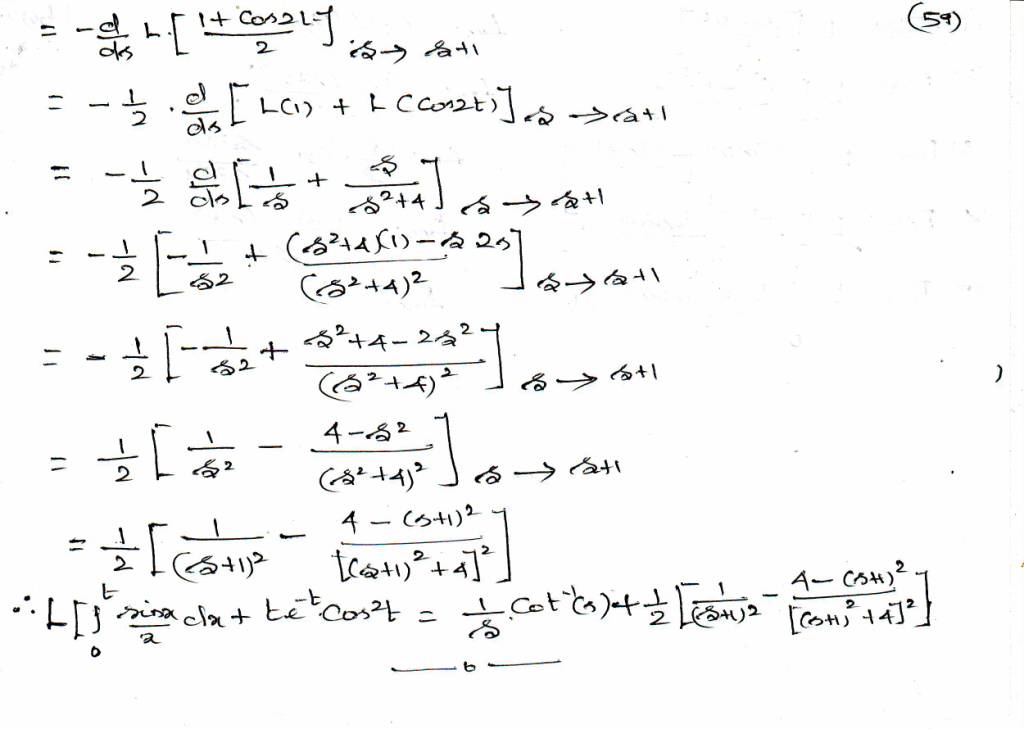 (59)
= -d/ds L.[(1+cos2t)/2] s→ s+1
= -1/2 . d/ds [L(1) + L(cos2t)] s →s+1
= -1/2 d/ds [1/s + s/(s²+4)] s → s+1
= -1/2 [-1/s² + ((s²+4)(1) - s 2s)/(s²+4)²] s→ s+1
= -1/2 [-1/s² + (s²+4-2s²)/(s²+4)²] s → s+1
= 1/2 [1/s² - (4-s²)/(s²+4)²] s → s+1
= 1/2 [1/(s+1)² - (4-(s+1)²)/[(s+1)²+4]²]
∴ L[∫₀ᵗ sinx/x dx + te⁻ᵗ cos²t = 1/s cot⁻¹(s) + 1/2 [1/(s+1)² - (4-(s+1)²)/[(s+1)²+4]²]